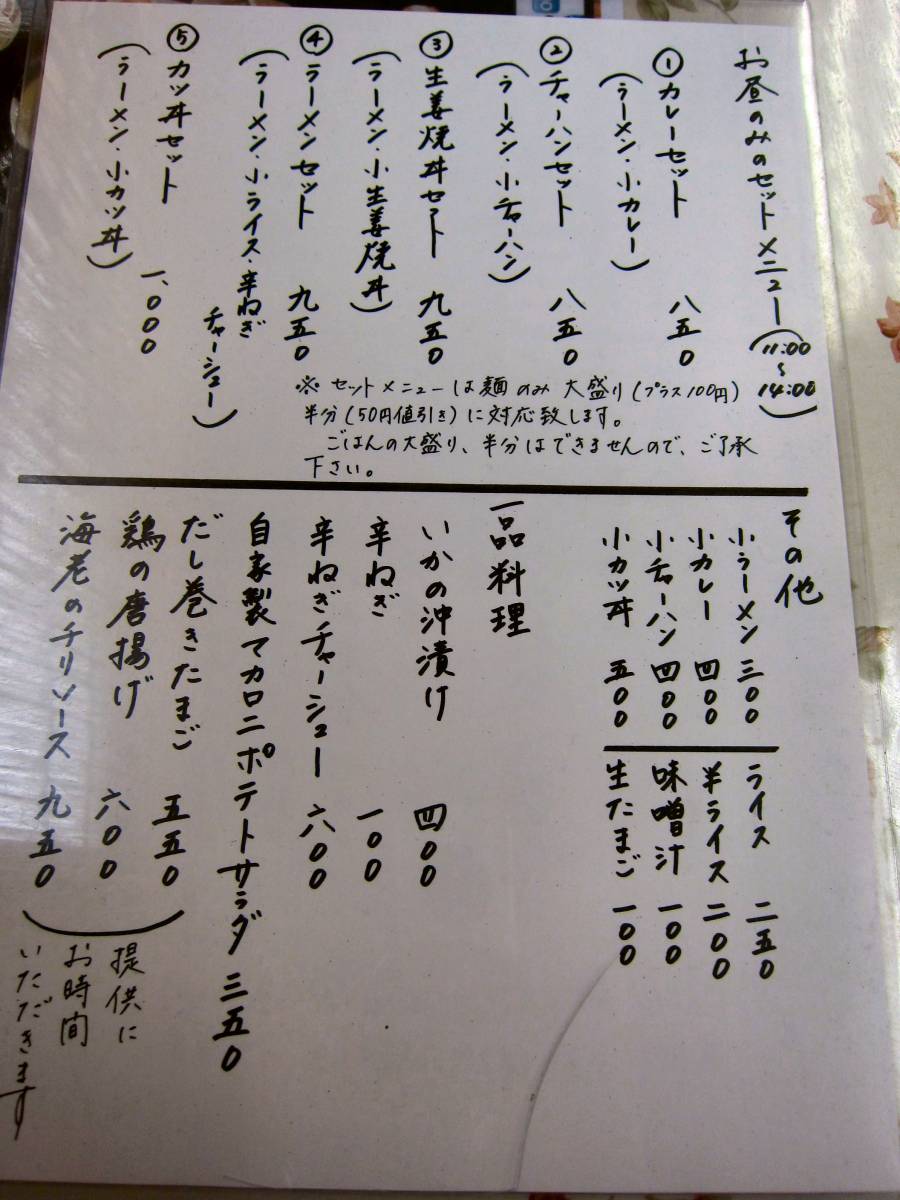 お昼のみのセットメニュー(11:00〜14:00)
①カレーセット 八五0
(ラーメン・小カレー)
②チャーハンセット 八五0
(ラーメン・小チャーハン)
③生姜焼丼セット 九五0
(ラーメン・小生姜焼丼)
④ラーメンセット 九五0
(ラーメン・小ライス・辛ねぎ
チャーシュー)
⑤カツ丼セット 一、000
(ラーメン・小カツ丼)
※セットメニューは麺のみ大盛り(プラス100円)
半分(50円値引き)に対応致します。
ごはんの大盛り、半分はできませんので、ご了承
下さい。
その他
小ラーメン 三00
小カレー 四00
小チャーハン 四00
小カツ丼 五00
ライス 二五0
半ライス 二00
味噌汁 一00
生たまご 一00
一品料理
いかの沖漬け 四00
辛ねぎ 一00
辛ねぎチャーシュー 六00
自家製マカロニポテトサラダ 三五0
だし巻きたまご 五五0
鶏の唐揚げ 六00
海老のチリソース 九五0
提供に
お時間
いただきます